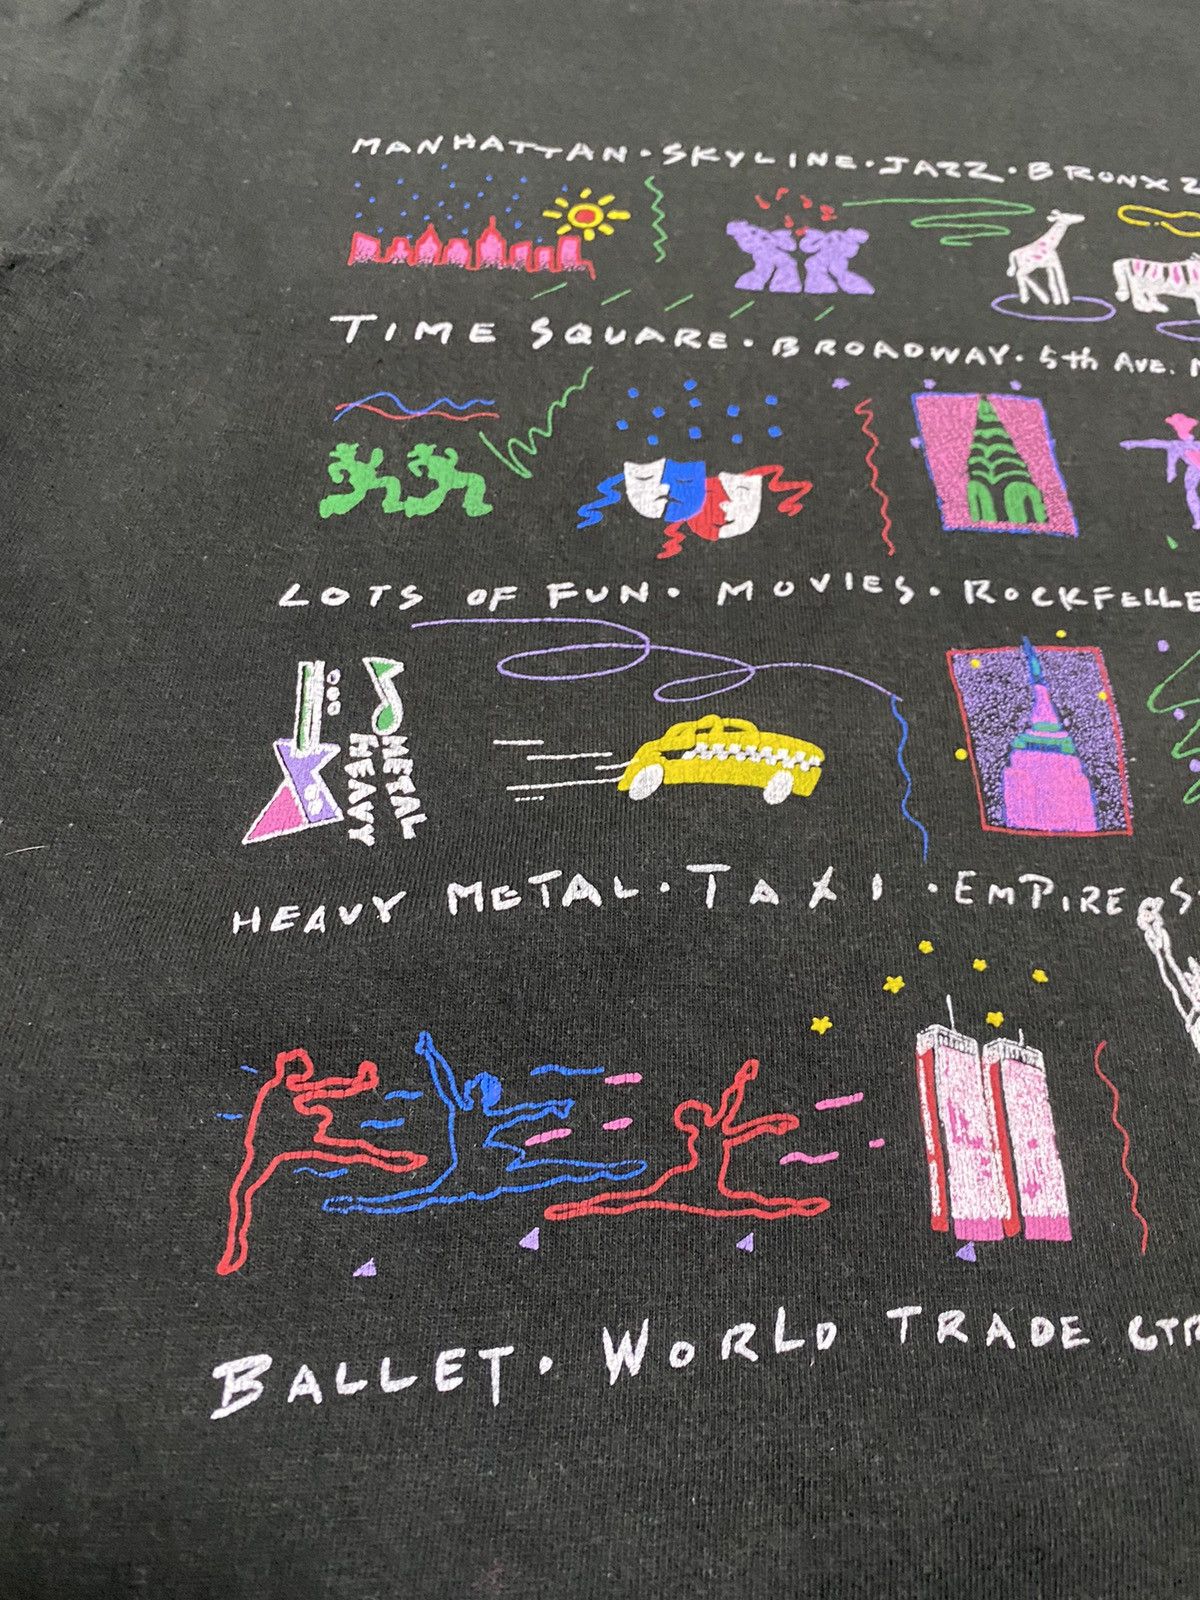 MANHATTAN · SKYLINE · JAZZ · BRONX
TIME SQUARE · BROADWAY · 5th AVE.
LOTS OF FUN · MOVIES · ROCKFELLE
METAL
HEAVY
HEAVY METAL · TAXI · EMPIRE S
BALLET · WORLD TRADE CTR